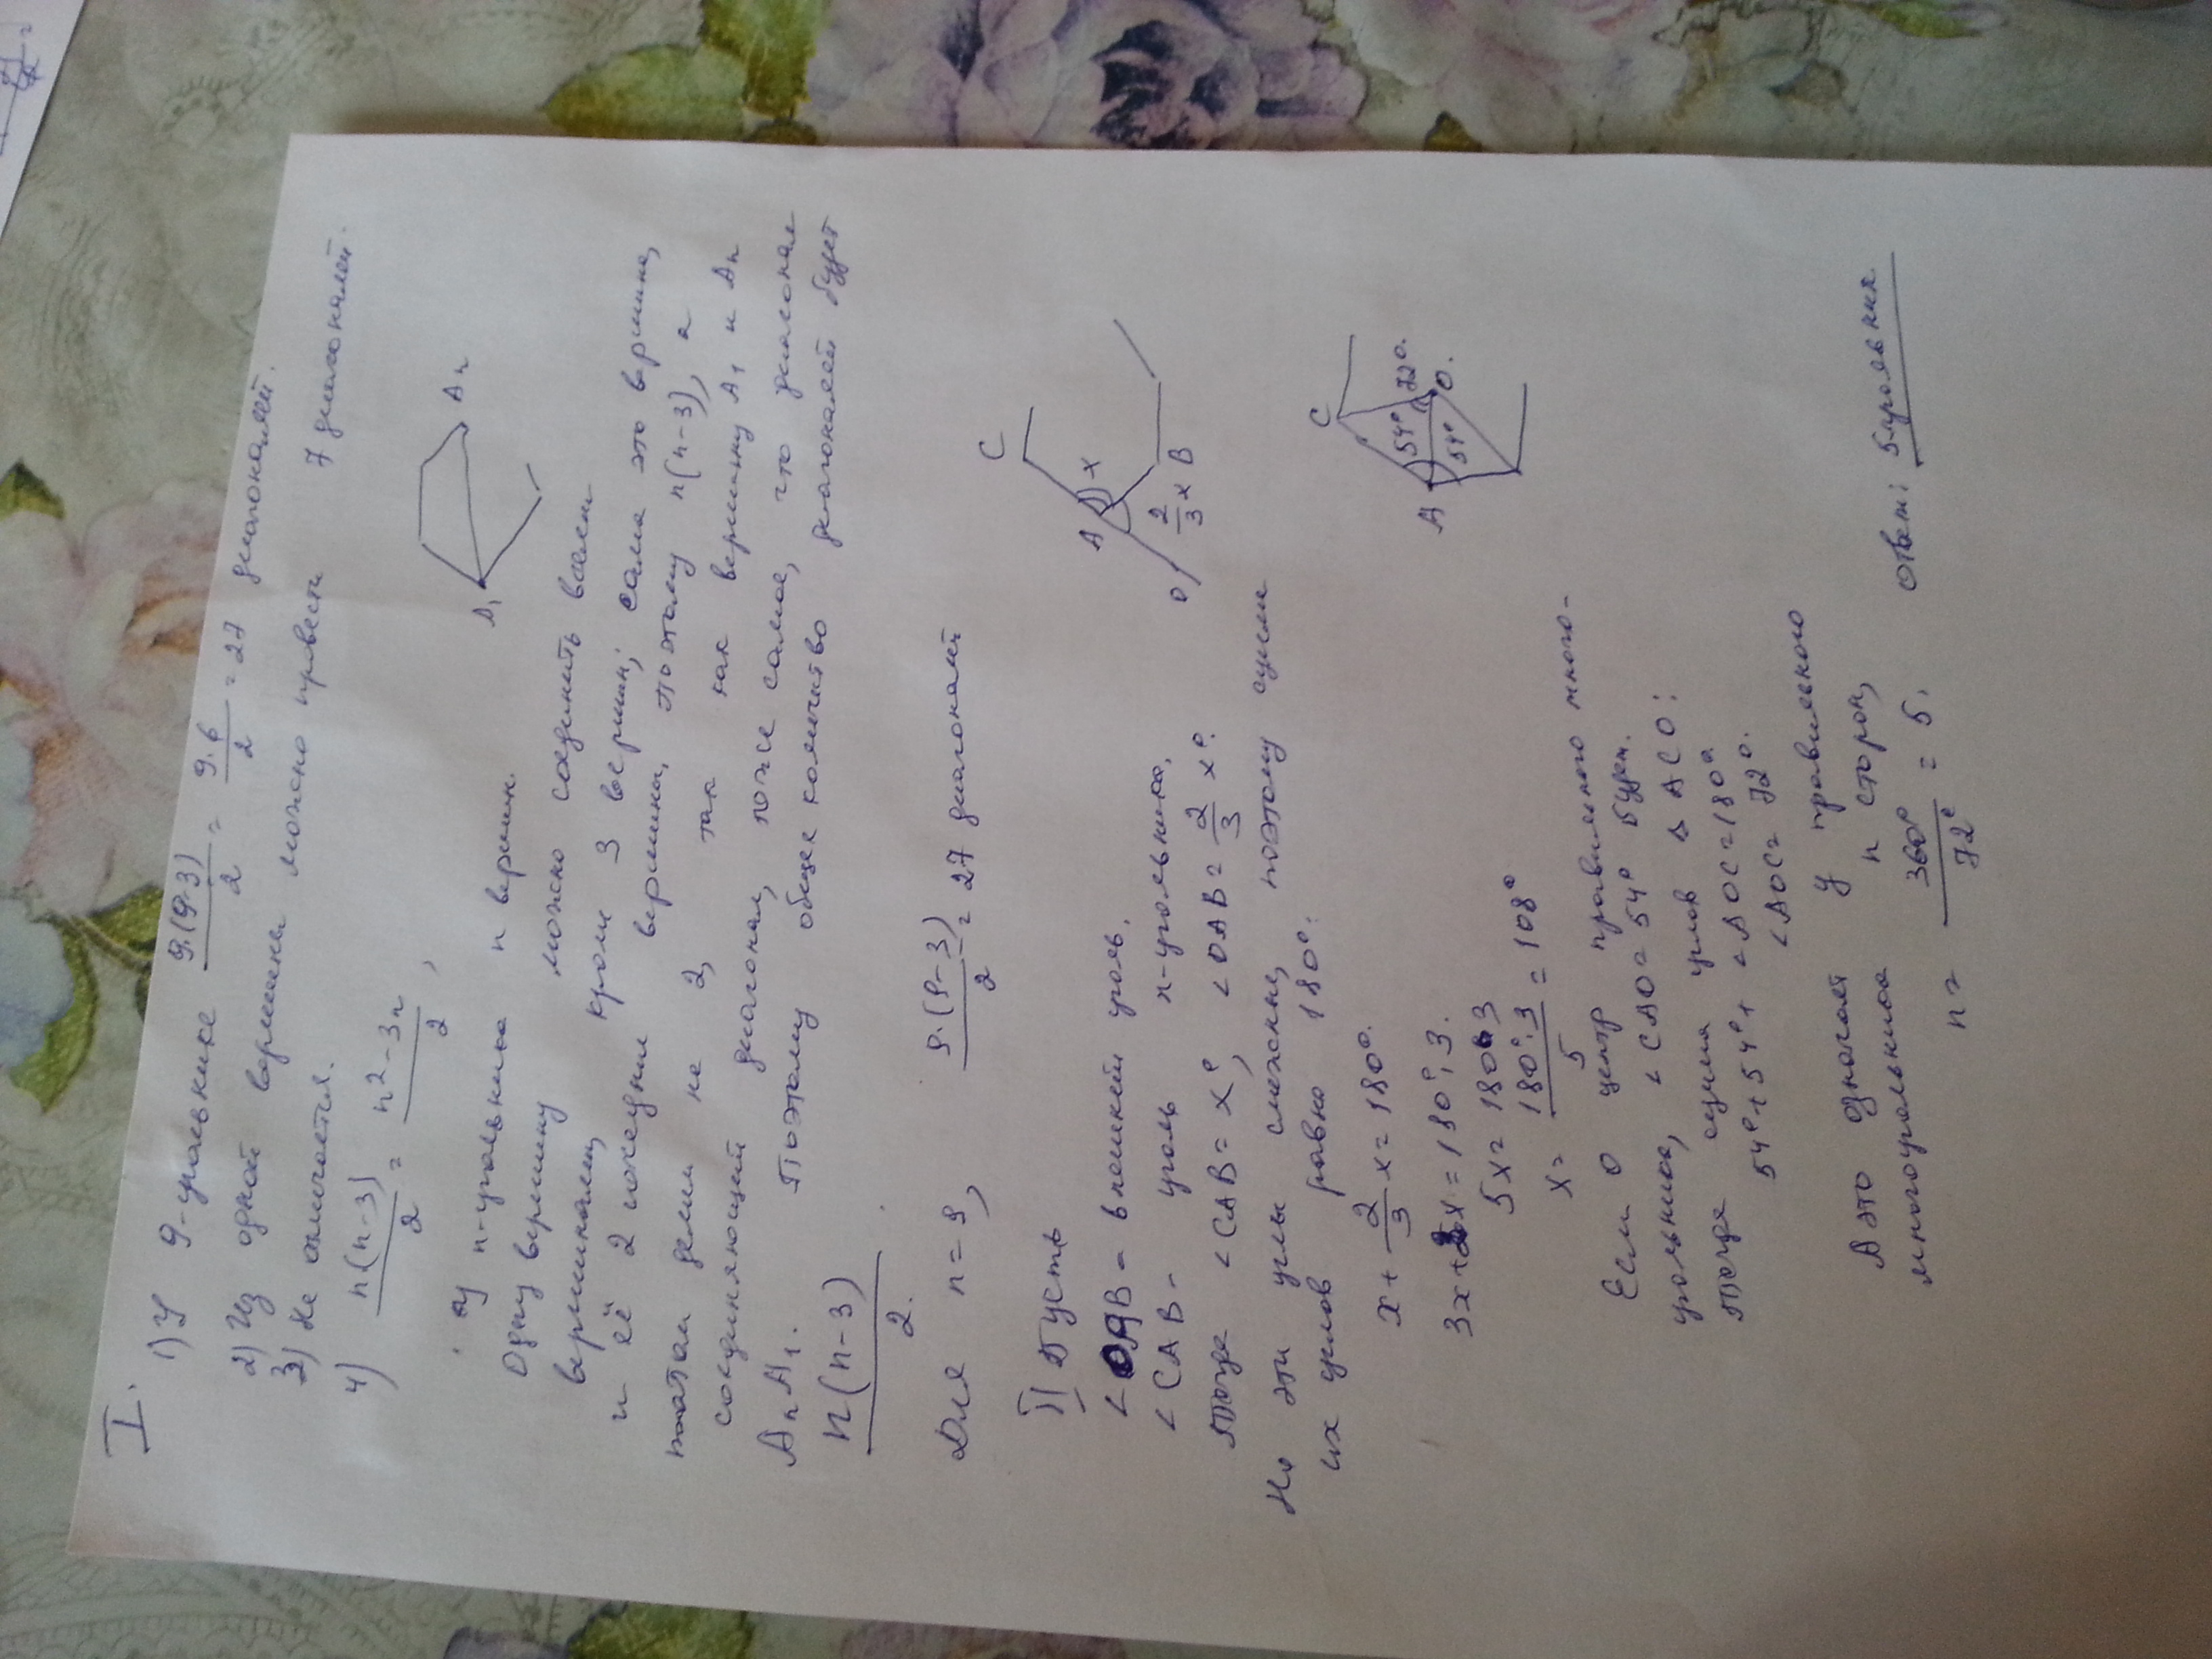 I.
1) У 9-угольнике 9·(9-3)/2 = 9·6/2 = 27 диагоналей.
2) Из одной вершины можно провести 7 диагоналей.
3) Не отличается.
4) n·(n-3)/2 = n²-3n/2,
A₁ Aₙ
У n-угольника n вершин.
Одну вершину можно соединить всеми
вершинами, кроме 3 вершин; сама это вершина,
и её 2 соседние вершины, поэтому n(n-3), а
потом делим на 2, так как вершину A₁ и Aₙ
соединяющий диагональ, тоже самое, что диагонал
AₙA₁. Поэтому общее количество диагоналей будет
n(n-3)/2.
Для n=9, 9·(9-3)/2 = 27 диагоналей
II Пусть
∠DAB - внешний угол.
∠CAB - угол n-угольника,
тогда ∠CAB = x°, ∠DAB = 2/3 x°.
Но эти углы смежные, поэтому сумма
их углов равно 180°:
C A x D 2/3 x B
x + 2/3 x = 180°.
3x+2x = 180°·3.
5x = 180·3
x = 180°·3/5 = 108°
Если O центр правильного много-
угольника, ∠CAO = 54° будет.
тогда сумма углов ΔACO:
54°+54°+∠AOC=180°
∠AOC=72°.
C A 54° 54° 72° O.
А это означает у правильного
многоугольника n сторон,
n = 360°/72° = 5. ответ: 5-угольник.